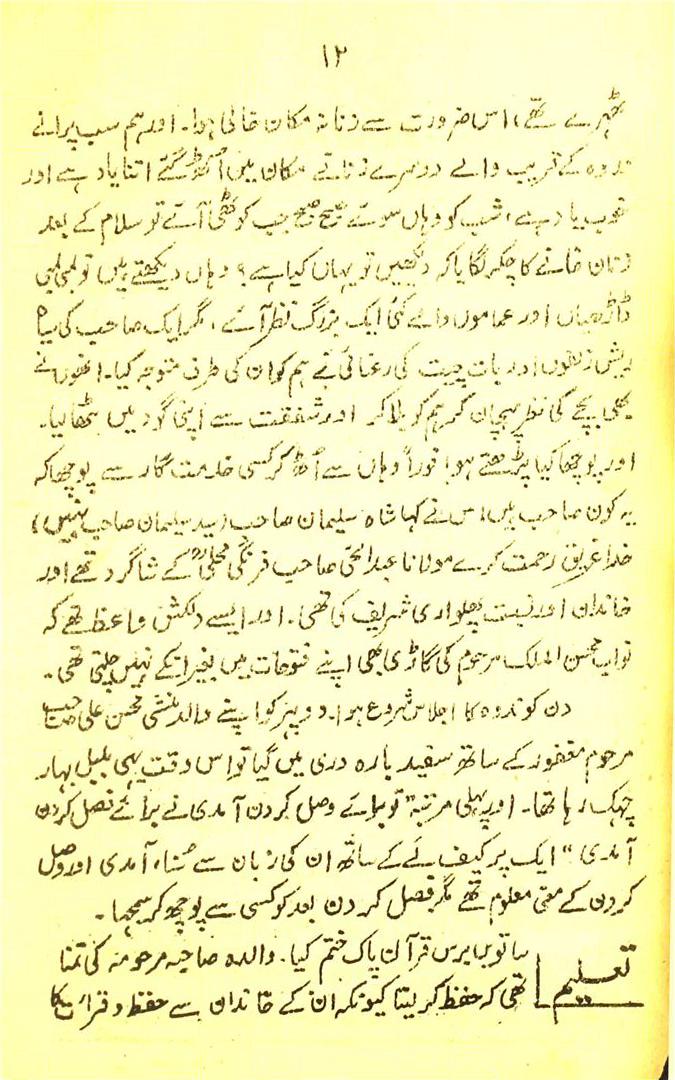 ۱۲
ٹھہرے تھے، اس ضرورت سے زنانہ مکان خالی ہوا۔ اور ہم سب پرانے
ندوہ کے قریب والے دوسرے زنانے مکان میں اٹھ گئے اتنا یاد ہے اور
خوب یاد ہے، شب کو وہاں سوئے صبح صبح جب کوٹھی آئے تو سلام کے بعد
زنان خانے کا چکر لگایا کہ دیکھیں تو یہاں کیا ہے؟ وہاں دیکھتے ہیں تو لمبی لمبی
ڈاڑھیاں اور عماموں والے کئی ایک بزرگ نظر آئے، مگر ایک صاحب کی سیاہ
ریش زلفوں اور بات چیت کی رعنائی نے ہم کو ان کی طرف متوجہ کیا۔ انھوں نے
بھی بچے کی نظر پہچان کر ہم کو بلا کر اور شفقت سے اپنی گود میں بٹھا لیا۔
اور پوچھا کیا پڑھتے ہو؟ فوراً وہاں سے اُٹھ کر کسی خدمت گار سے پوچھا کہ
یہ کون صاحب ہیں، اس نے کہا شاہ سلیمان صاحب (سید سلیمان صاحب نہیں)
خدا غریق رحمت کرے مولانا عبدالحئی صاحب فرنگی محلیؒ کے شاگرد تھے اور
خاندان اور نسبت پھلواری شریف کی تھی۔ اور ایسے دلکش واعظ تھے کہ
نواب محسن الملک مرحوم کی گاڑی بھی اپنے فتوحات میں بغیر انکے نہیں چلتی تھی۔
دن کو ندوہ کا اجلاس شروع ہوا۔ دوپہر کو اپنے والد منشی محسن علی صاحب
مرحوم مغفور کے ساتھ سفید بارہ دری میں گیا تو اس وقت یہی بلبل بہار
چہک رہا تھا۔ اور پہلی مرتبہ "تو برائے وصل کردن آمدی نے برائے فصل کردن
آمدی" ایک پر کیف لَے کے ساتھ ان کی زبان سے سُنا، آمدی اور وصل
کردن کے معنی معلوم تھے مگر فصل کردن بعد کو کسی سے پوچھ کر سمجھا۔
تعلیم ساتویں برس قرآن پاک ختم کیا۔ والدہ صاحبہ مرحومہ کی تمنا
تھی کہ حفظ کر لیتا کیونکہ ان کے خاندان سے حفظ و قرائت کا